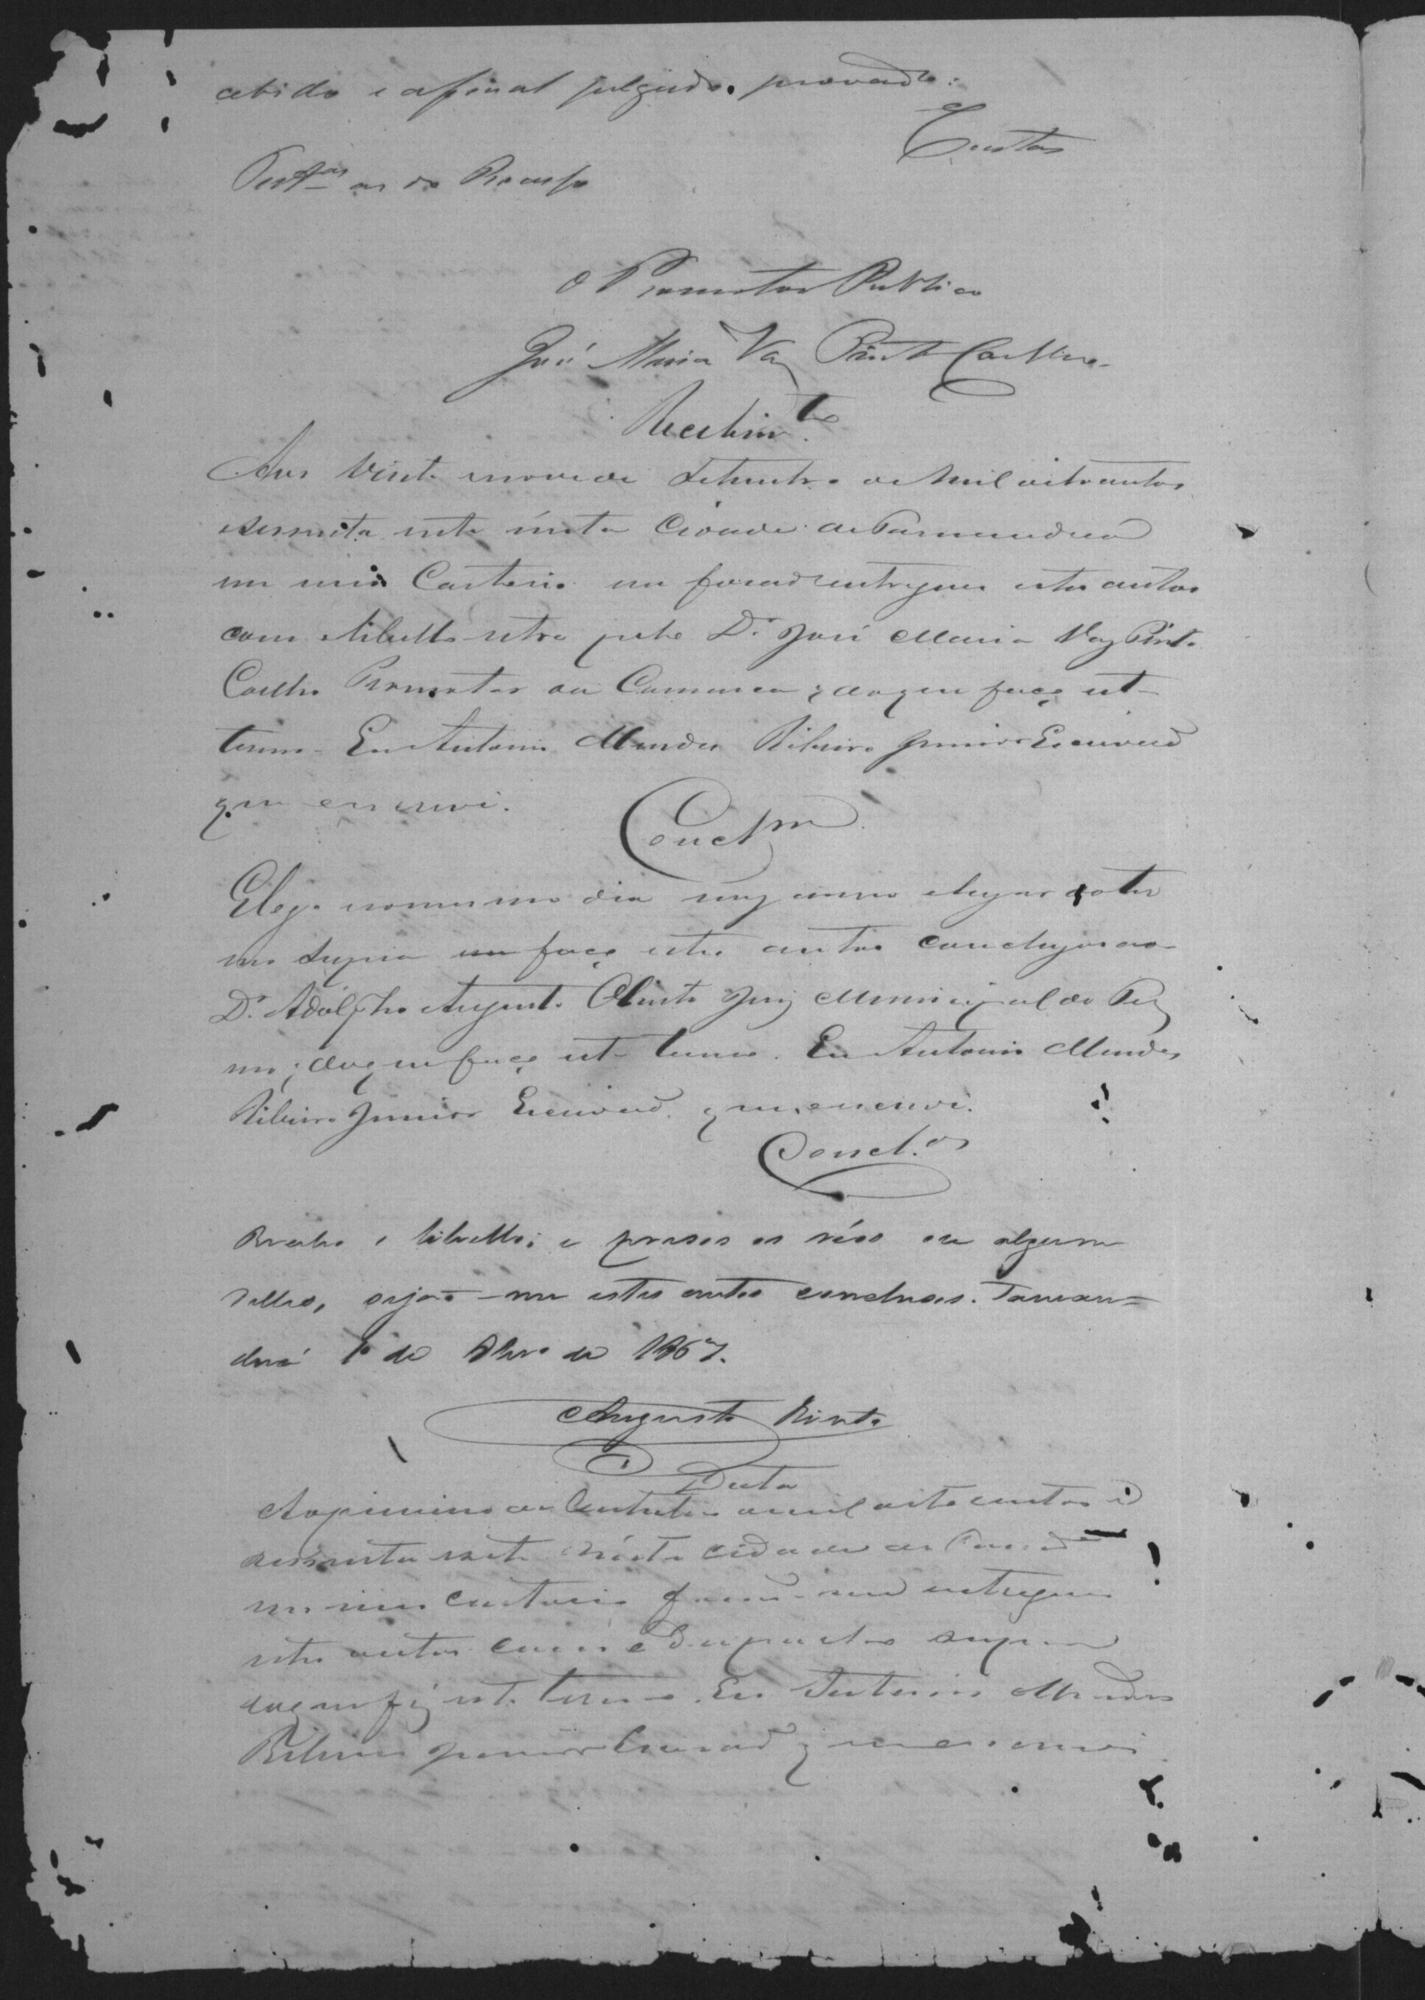 cebido e afinal julgado provado.
Custas
Test.as as do Processo
O Promotor Publico
José Maria Vaz Pinto Coelho
Recebim.to
Aos vinte nove de Setembro de mil oitocentos
e sessenta sete nesta Cidade de Tamanduá
em meu Cartorio me forão entregues estes autos
com o libello retro pelo D.r José Maria Vaz Pinto
Coelho Promotor da Comarca; do que faço este
termo. Eu Antonio Mendes Ribeiro Junior Escrivão
que escrevi.
Concl.m
E logo no mesmo dia mez anno e lugar do ter
mo supra faço estes autos conclusos ao
D.r Adolpho Augusto Olinto Juiz Municipal do Ter
mo; do que faço este termo. Eu Antonio Mendes
Ribeiro Junior Escrivão que escrevi.
Concl.os
Recebo o libello; e presos os réos ou algum
delles, sejão-me estes autos conclusos. Taman=
duá 1º de 8bro de 1867.
Augusto Olinto
Data
Ao primeiro de Outubro de mil oitocentos e
sessenta sete nésta cidade de Tamanduá
em meu cartorio forão-me entregues
estes autos com o Despacho supra
do que fiz este termo. Eu Antonio Mendes
Ribeiro Junior Escrivão que escrevi